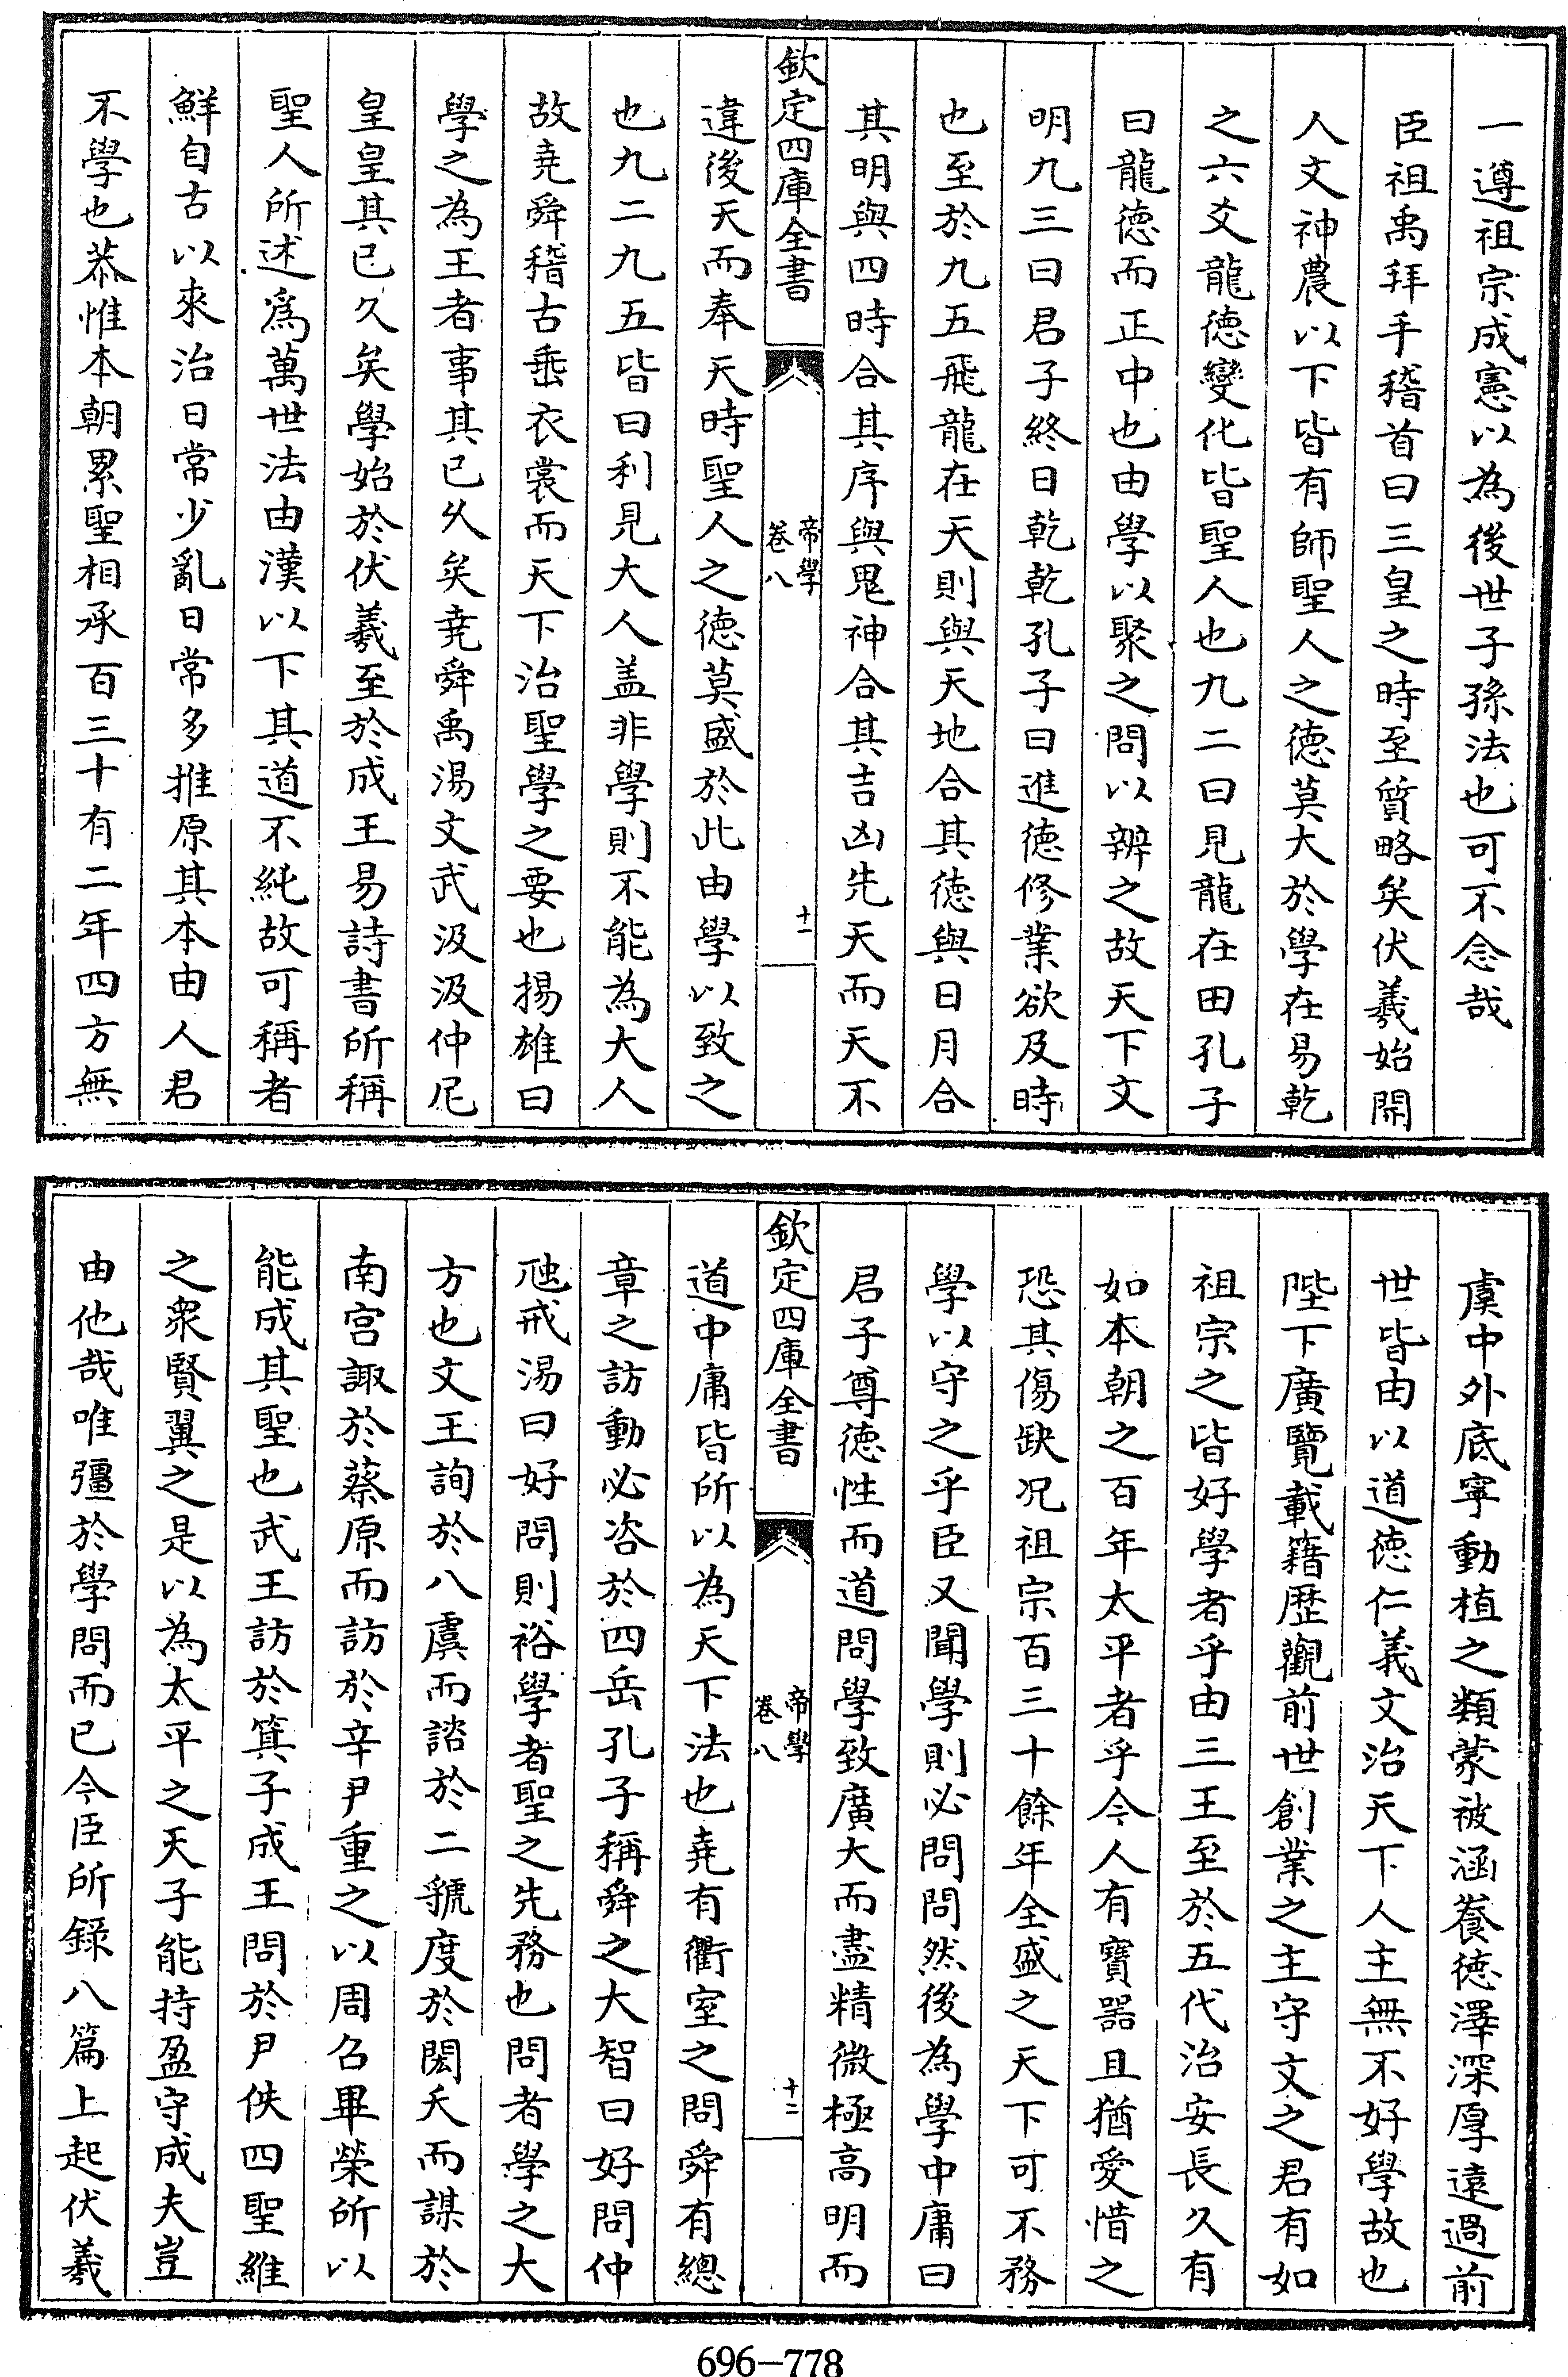 一遵祖宗成憲以為後世子孫法也可不念哉
臣祖禹拜手稽首曰三皇之時至質略矣伏羲始開
人文神農以下皆有師聖人之德莫大於學在易乾
之六爻龍德變化皆聖人也九二曰見龍在田孔子
曰龍德而正中也由學以聚之問以辨之故天下文
明九三曰君子終日乾乾孔子曰進德修業欲及時
也至於九五飛龍在天則與天地合其德與日月合
其明與四時合其序與鬼神合其吉凶先天而天不
欽定四庫全書
帝學
卷八
十一
違後天而奉天時聖人之德莫盛於此由學以致之
也九二九五皆曰利見大人盖非學則不能為大人
故堯舜稽古垂衣裳而天下治聖學之要也揚雄曰
學之為王者事其已久矣堯舜禹湯文武汲汲仲尼
皇皇其已久矣學始於伏羲至於成王易詩書所稱
聖人所述爲萬世法由漢以下其道不純故可稱者
鮮自古以來治日常少亂日常多推原其本由人君
不學也恭惟本朝累聖相承百三十有二年四方無
虞中外底寧動植之類蒙被涵養德澤深厚遠過前
世皆由以道德仁義文治天下人主無不好學故也
陛下廣覽載籍歴觀前世創業之主守文之君有如
祖宗之皆好學者乎由三王至於五代治安長久有
如本朝之百年太平者乎今人有寶噐且猶愛惜之
恐其傷缺况祖宗百三十餘年全盛之天下可不務
學以守之乎臣又聞學則必問問然後為學中庸曰
君子尊德性而道問學致廣大而盡精微極高明而
欽定四庫全書
帝學
卷八
十二
道中庸皆所以為天下法也堯有衢室之問舜有總
章之訪動必咨於四岳孔子稱舜之大智曰好問仲
虺戒湯曰好問則裕學者聖之先務也問者學之大
方也文王詢於八虞而諮於二虢度於閎夭而謀於
南宮諏於蔡原而訪於辛尹重之以周召畢榮所以
能成其聖也武王訪於箕子成王問於尹佚四聖維
之衆賢翼之是以為太平之天子能持盈守成夫豈
由他哉唯彊於學問而已今臣所錄八篇上起伏羲
696-778